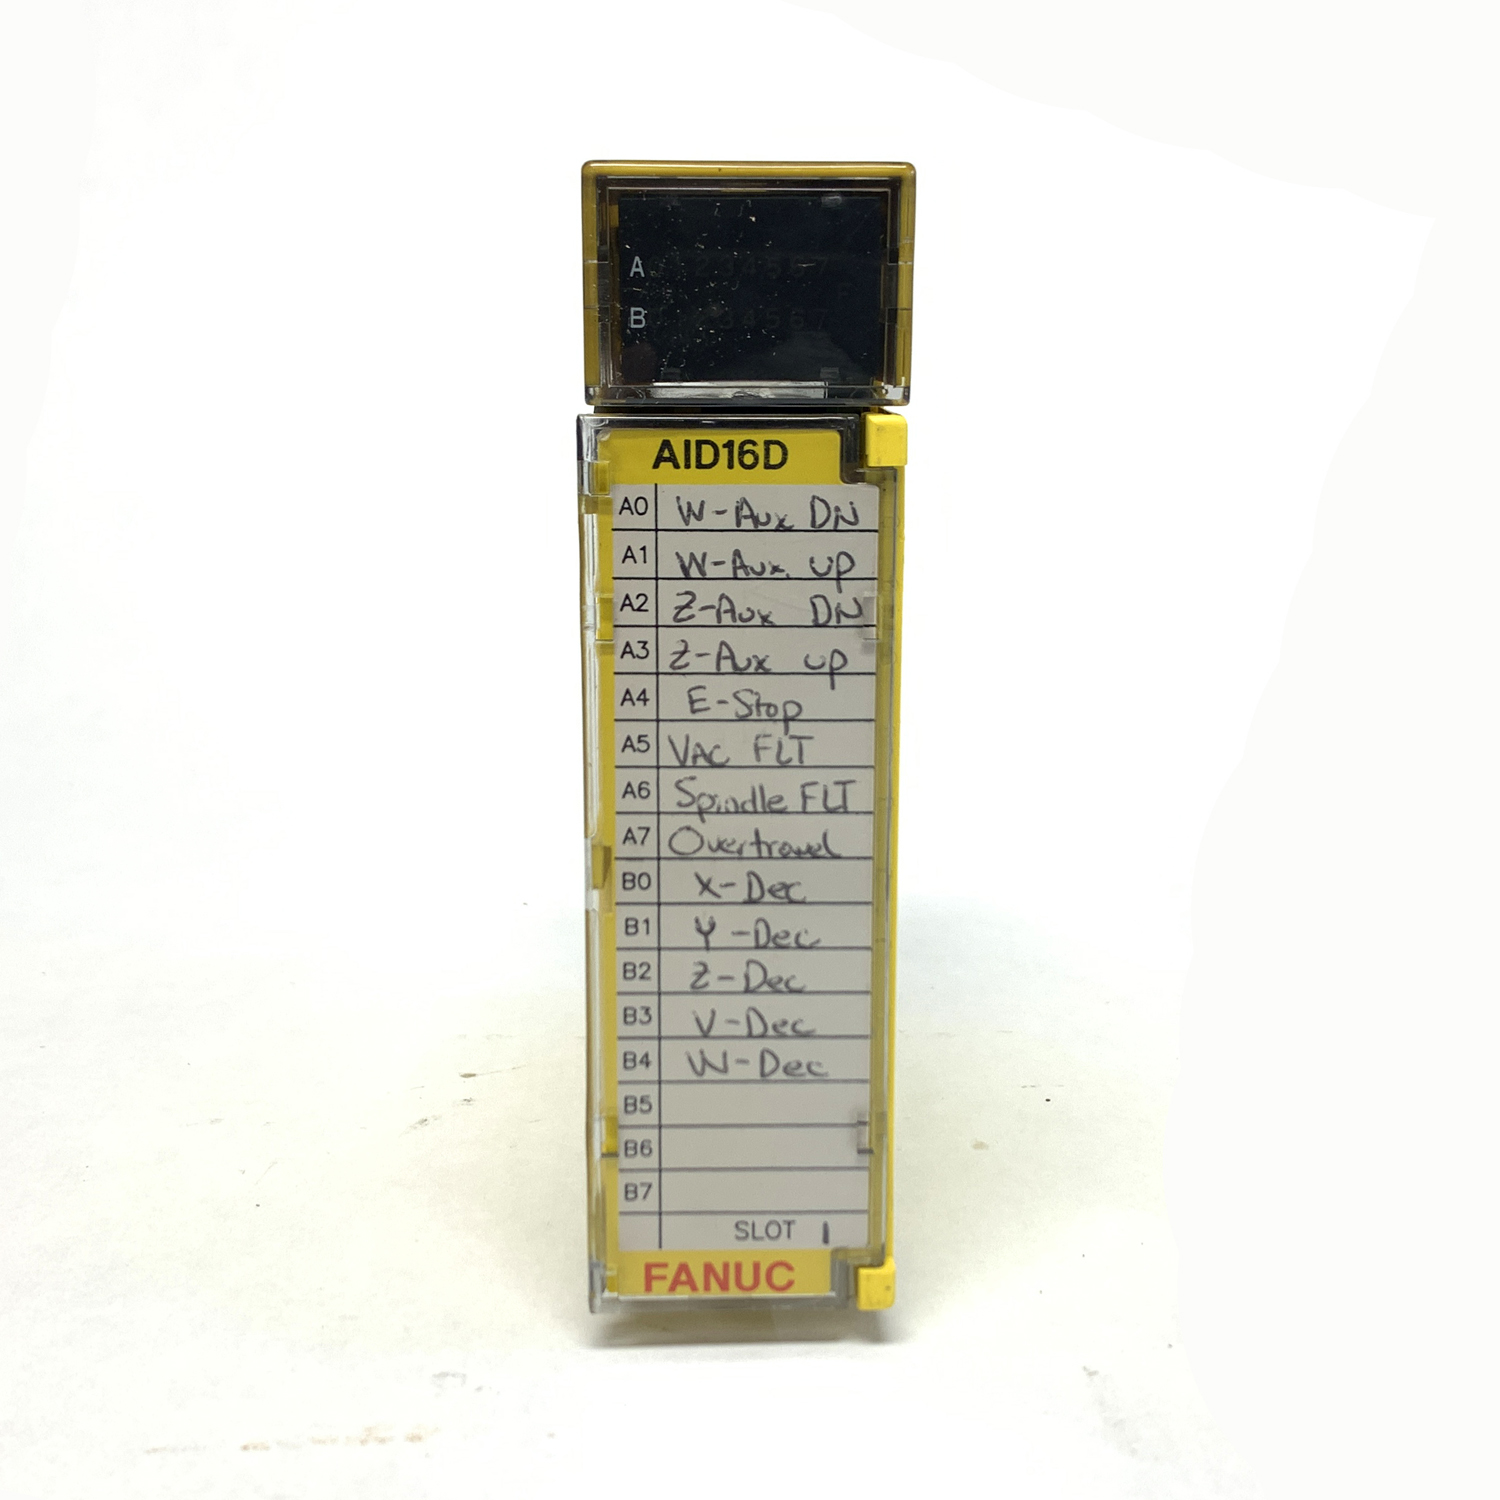 A 234567
B 234567
AID16D
A0 W-Aux DN
A1 W-Aux. up
A2 Z-Aux DN
A3 Z-Aux up
A4 E-Stop
A5 VAC FLT
A6 Spindle FLT
A7 Overtravel
B0 X-Dec
B1 Y-Dec
B2 Z-Dec
B3 V-Dec
B4 W-Dec
B5
B6
B7
SLOT 1
FANUC